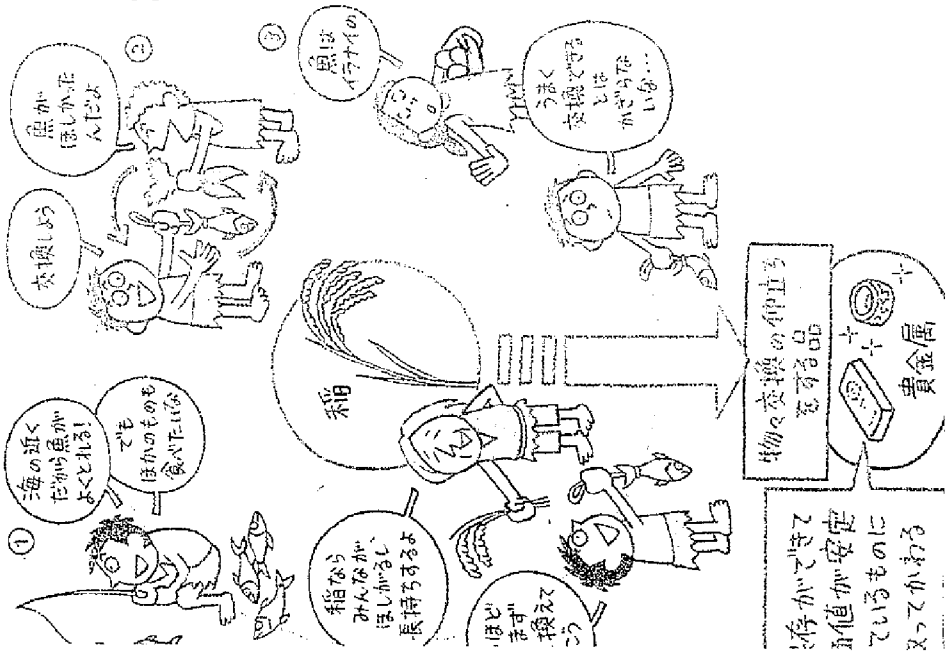 ①
海の近く
だから魚が
よくとれる!
でも
ほかのものも
食べたいな
②
魚が
ほしかった
んだよ
交換しよう
③
魚は
イラナイの
うまく
交換できる
とは
かぎらな
いな…
稲
稲なら
みんなが
ほしがるし、
長持ちするよ
ほど
まず
換えて
こう
物々交換の仲立ち
をする品
貴金属
存ができて
値が安定
ているものに
取ってかわる